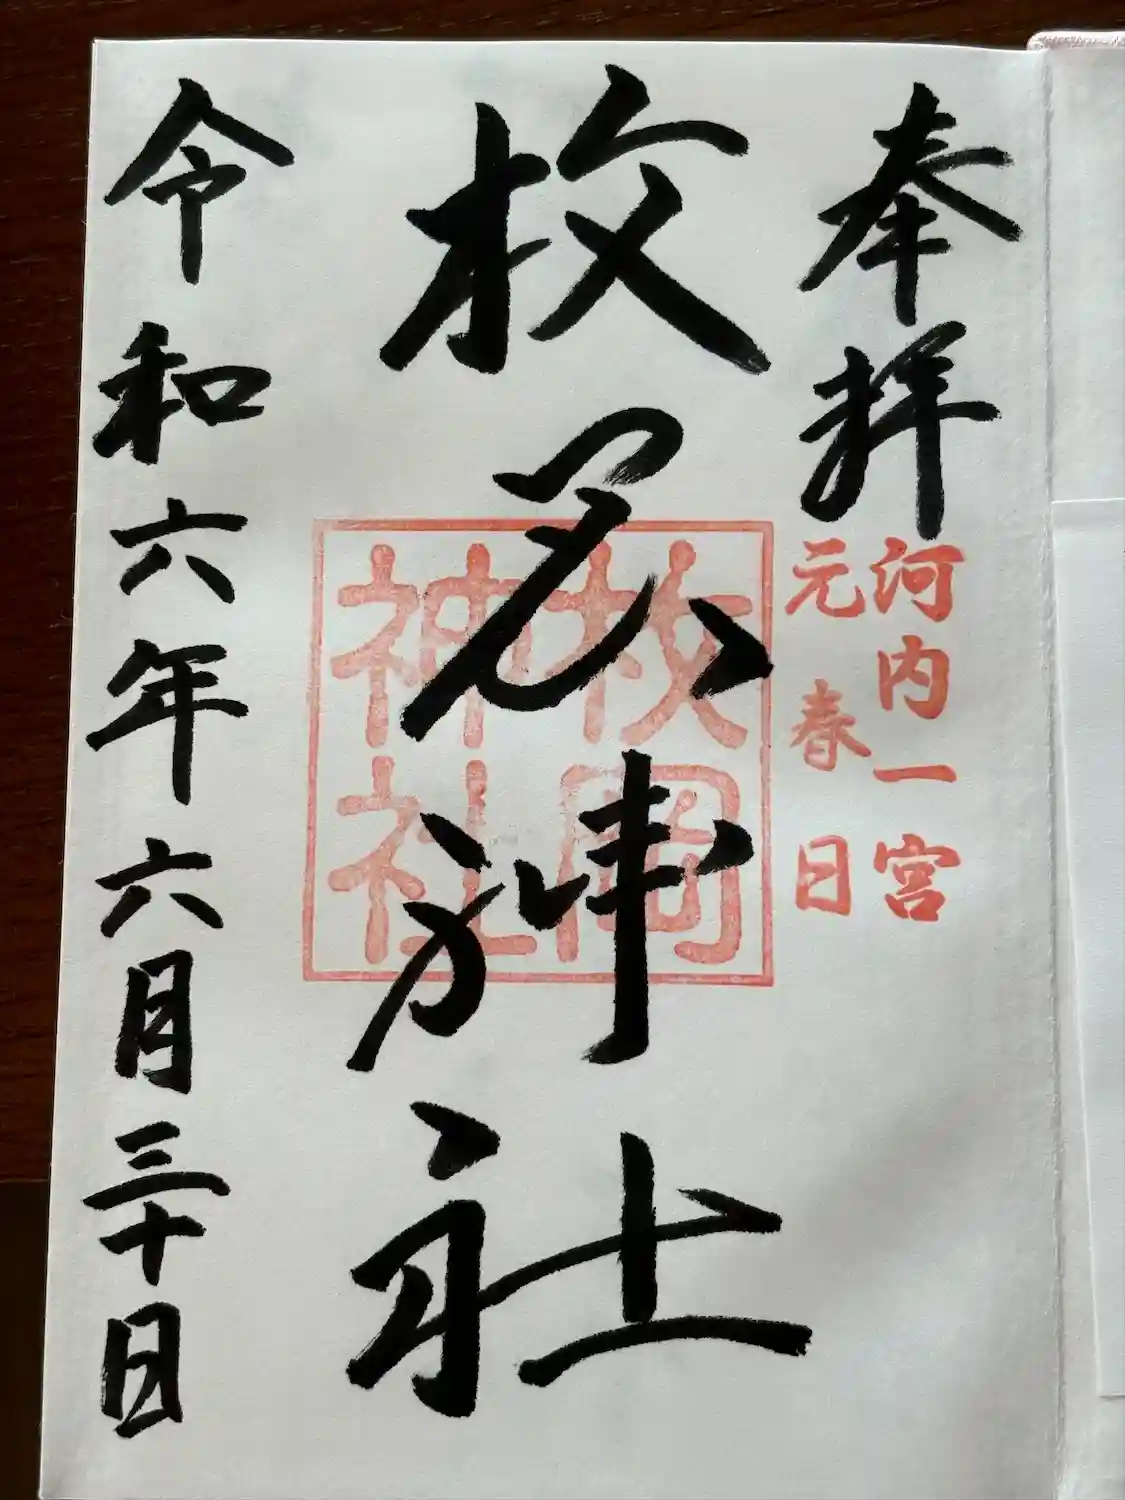 奉拝
河内一宮
元春日
枚岡神社
枚岡
神社
令和六年六月三十日